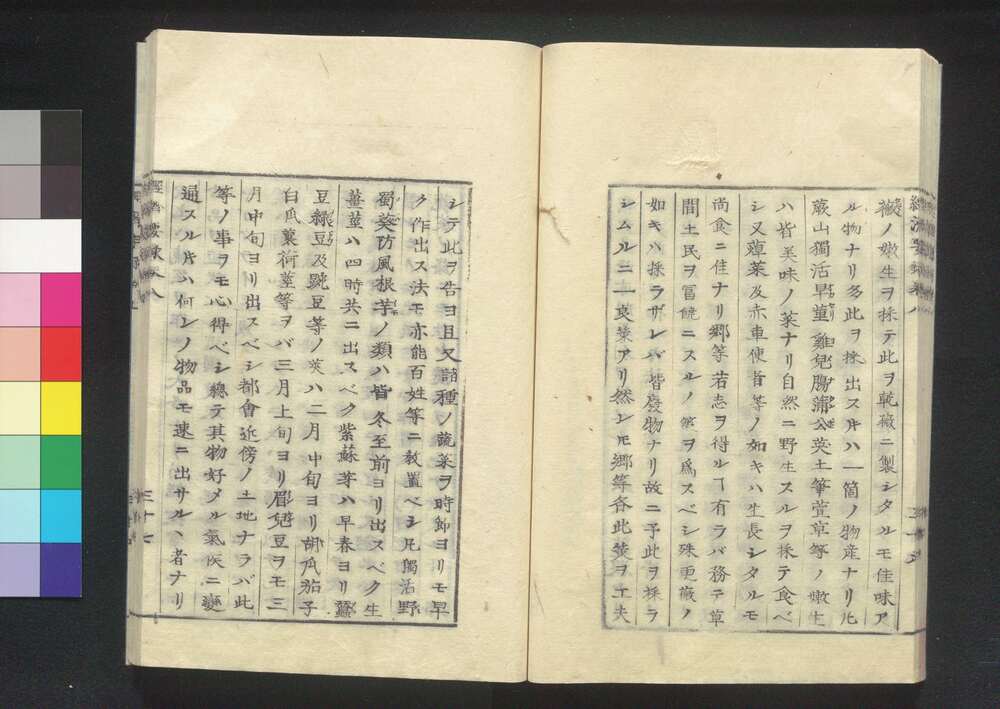 薇ノ嫩生ヲ採テ此ヲ乾薇ニ製シタルモ佳味ア
ル物ナリ多此ヲ採出ス片ハ一箇ノ物産ナリ凡
蕨山獨活早菫雞兒腸蒲公英土筆萱草等ノ嫩生
ハ皆美味ノ菜ナリ自然ニ野生スルヲ採テ食ベ
シ又蓴菜及赤車使者等ノ如キハ生長シタルモ
尚食ニ佳ナリ郷等若志ヲ得ルヿ有ラバ務テ草
間土民ヲ冨饒ニスルノ策ヲ爲スベシ殊更薇ノ
如キハ採ラザレバ皆廢物ナリ故ニ予此ヲ採ラ
シムルニ一良策アリ然レ𪜈郷等各此策ヲ工夫
シテ此ヲ告ヨ且又諸種ノ蔬菜ヲ時節ヨリモ早
ク作出ス法モ亦能百姓等ニ敎置ベシ凡獨活野
蜀葵防風根芋ノ類ハ皆冬至前ヨリ出スベク生
薑莖ハ四時共ニ出スベク紫蘇芽ハ早春ヨリ蠶
豆綠豆及豌豆等ノ莢ハ二月中旬ヨリ胡瓜茄子
白瓜蘘荷莖等ヲバ三月上旬ヨリ眉兒豆ヲモ三
月中旬ヨリ出スベシ都會近傍ノ土地ナラバ此
等ノ事ヲモ心得ベシ總テ其物好メル氣候ニ變
通スル片ハ何レノ物品モ速ニ出サルヽ者ナリ
三十七